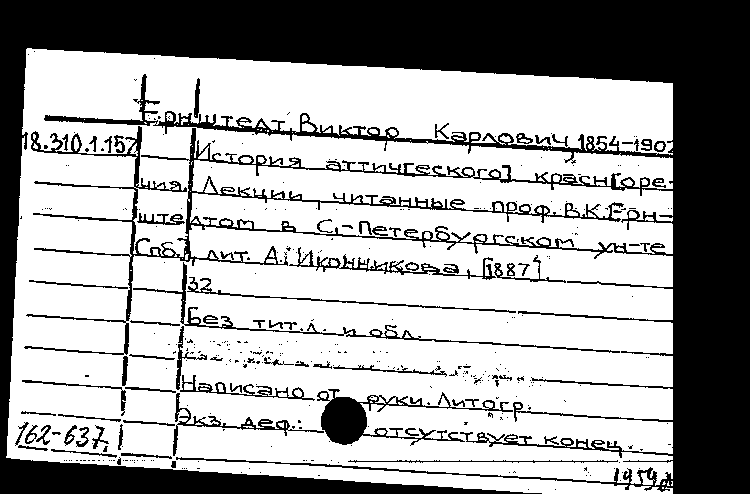 Ернштедт, Виктор Карлович, 1854-1902
18.310.1.157 История аттич[еского] красн[оре-
чия. Лекции, читанные проф. В.К.Ерн-
штедтом в С.-Петербургском ун-те
Спб.], лит. А. Иконникова, [1887].
32.
Без тит.л. и обл.
Написано от руки. Литогр.
Экз. деф.: отсутствует конец.
162-637.
1959